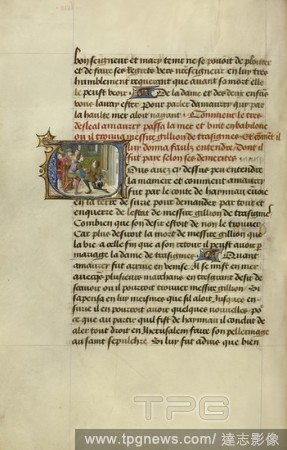 bon seigneur et mary teme ne se povoit de plourer
et de faire ses regretz vers nre seigneur en luy tres
humblement requerant que avant sa mort elle
le peust veoir De la dame et des deux enfans
vous lauray ester Pour parler damaury qui par
la haulte mer aloit nagant Comment le tres
desleal amaury passa la mer et vint en babilone
ou il trouva messire gillion de trasignies Et
luy donna faulx entendre Dont il
fut paie selon ses demerites
avez cy dessus peu entendre
la maniere et comment amaury
par le conte de haynnau
en la terre de surie pour demander par tout et
enquerre de lestat de messire gillion de trasignies
Combien que son desir estoit de non le trouver
Car plus desiroit la mort de messire gillion que
la vie a celle fin que a son retour il peust avoir par
mariage la dame de trasignies Quant
amaury fut arrive en venise Il se mist en mer
avecques plusieurs marchans en tresgrant desir de
scavoir ou il pourroit trouver messire gillion Si
sapensa en luy mesmes que sil aloit jusques en
surie il en pourroit avoir quelques nouvelles
ce que au partir quil fist de haynnau il conclut de
aler tout droit en Jherusalem faire son pellerinage
au saint sepulchre Si luy fut advis que bien
TPG
www.tpgnews.com / 達志影像